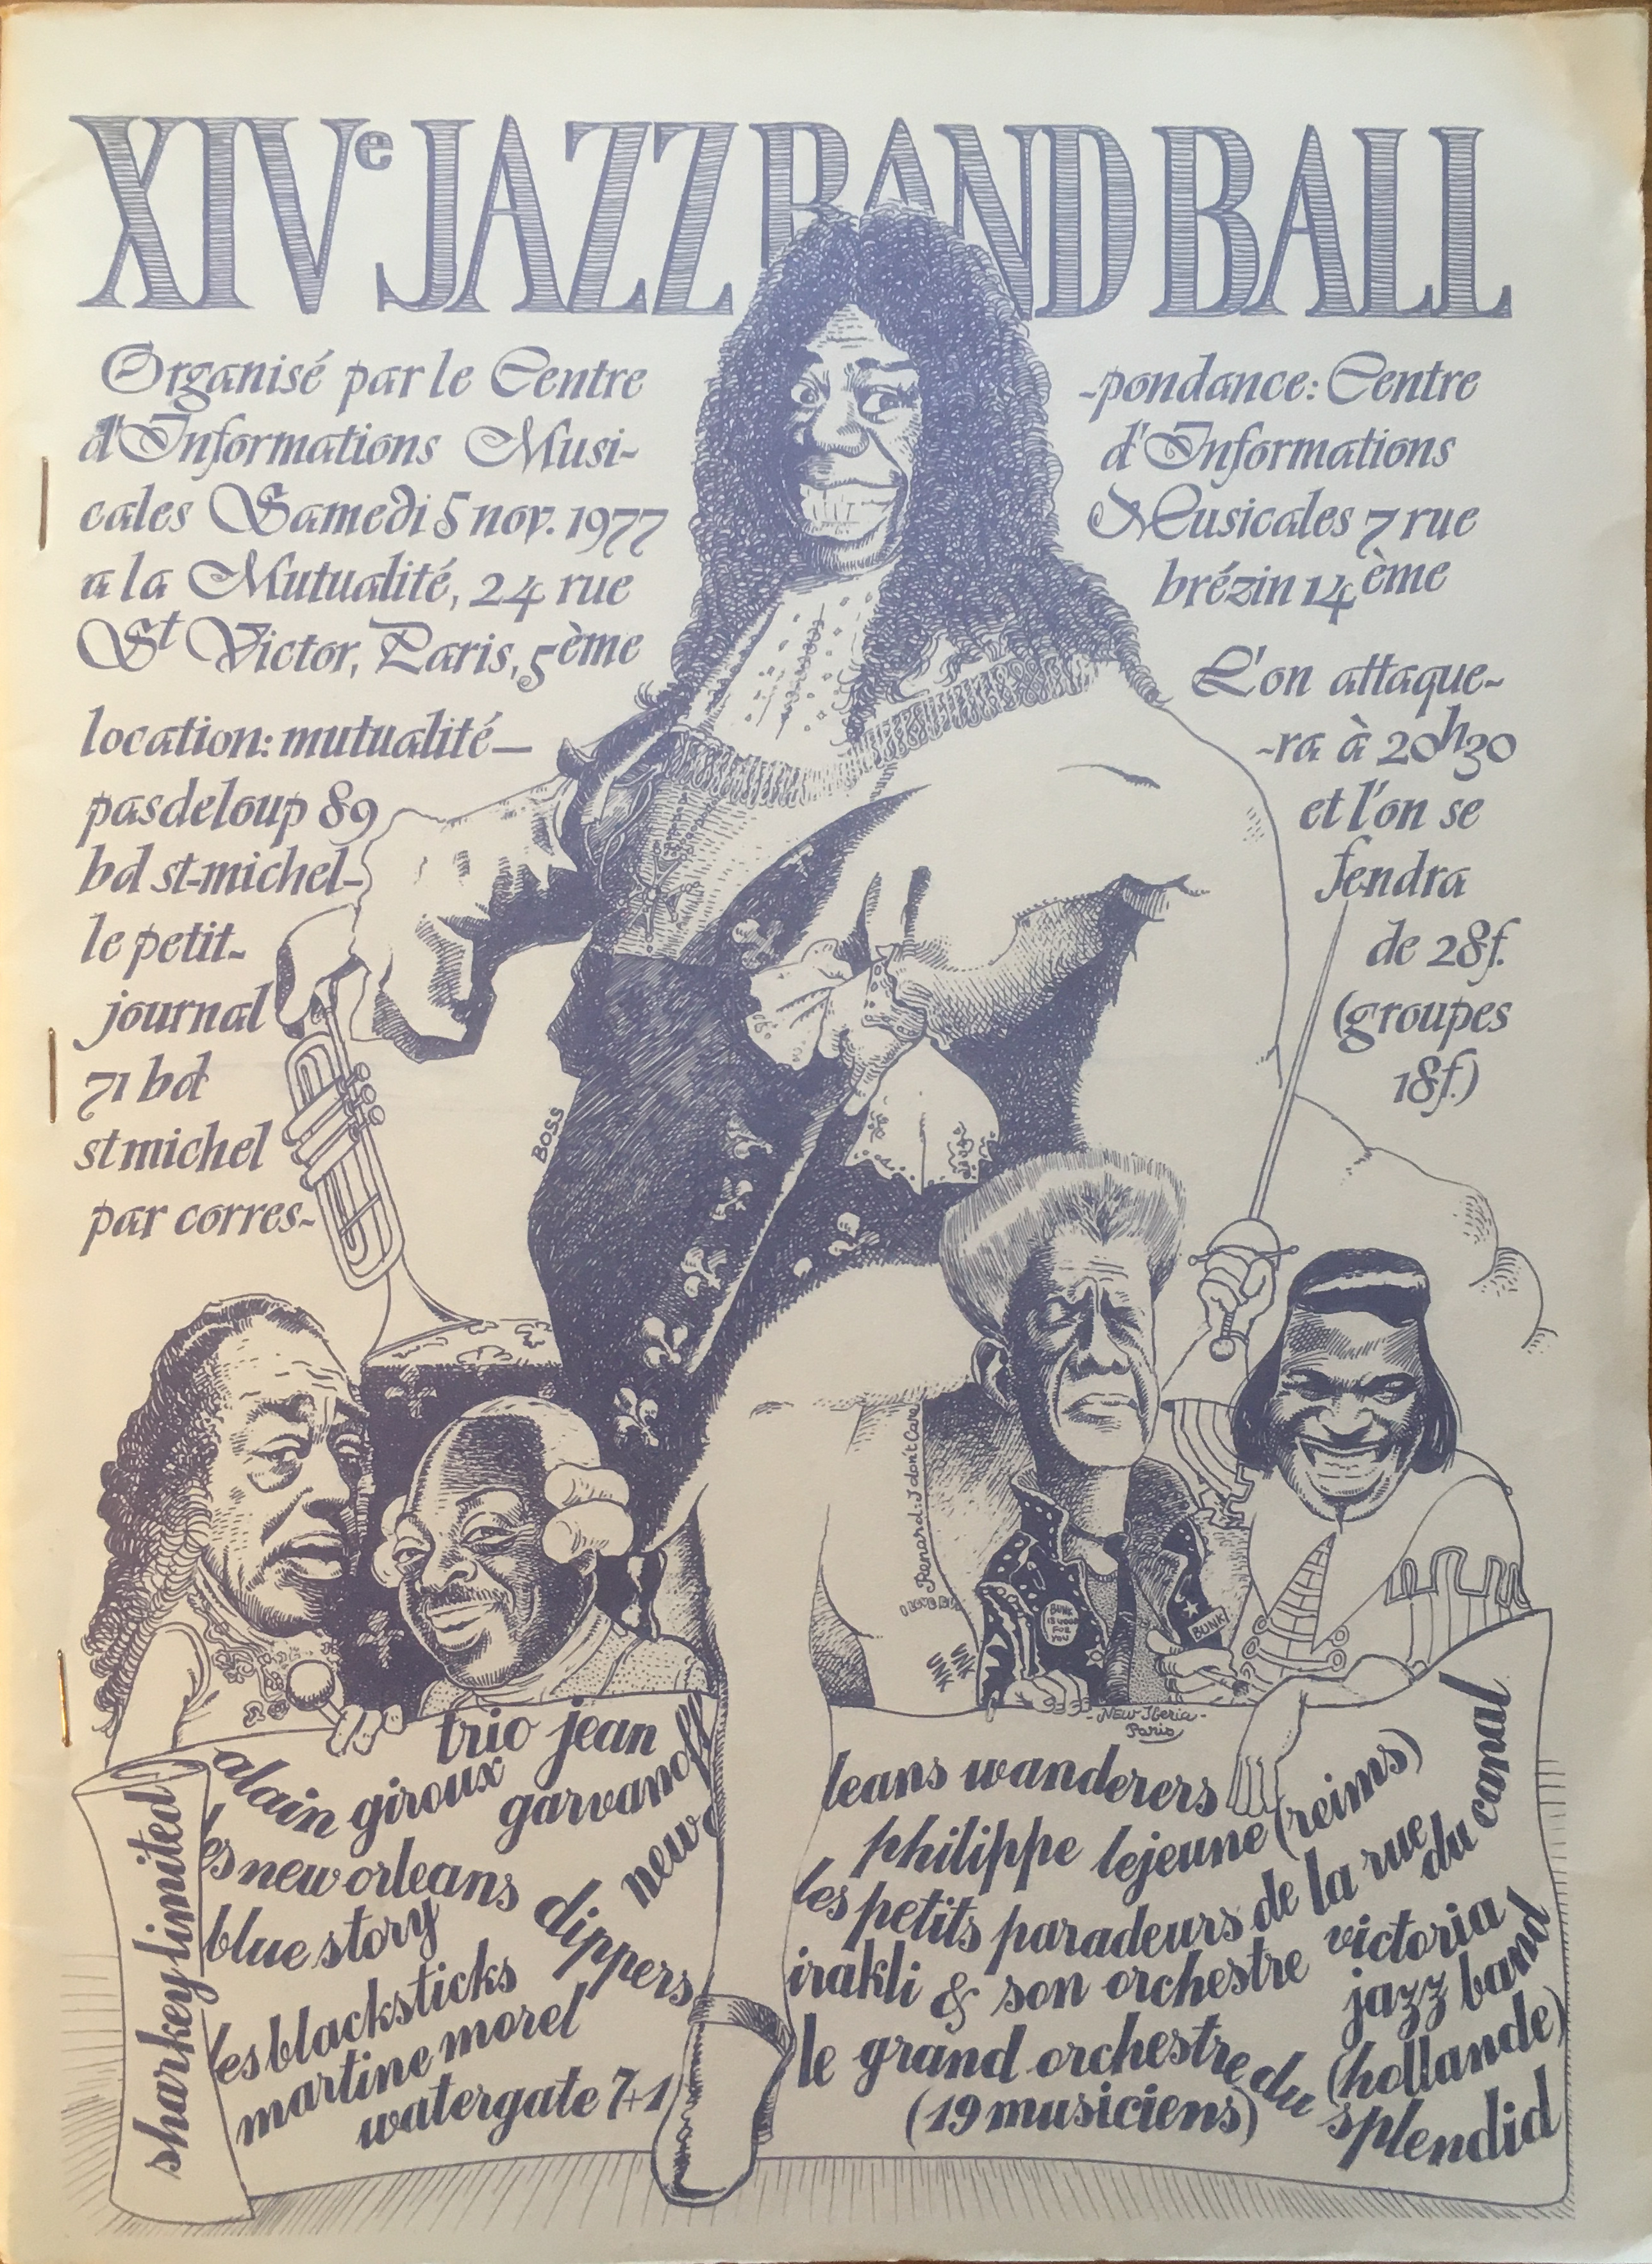 XIVe JAZZ BAND BALL
Organisé par le Centre
d'Informations Musi-
cales Samedi 5 nov. 1977
a la Mutualité, 24 rue
St Victor, Paris, 5ème
location: mutualité—
pasdeloup 89
bd st-michel-
le petit-
journal
71 bd
st michel
par corres-
-pondance: Centre
d'Informations
Musicales 7 rue
brézin 14ème
L'on attaque-
-ra à 20h30
et l'on se
fendra
de 28f.
(groupes
18f.)
BOSS
Renard: I don't Care
I LOVE
BUNK
IS GOOD
FOR
YOU
BUNK!
-New Iberia-
Paris
sharkey limited
alain giroux
trio jean
garvanoff
les new orleans
dippers
blue story
les blacksticks
martine morel
watergate 7+1
new or
leans wanderers
philippe lejeune (reims)
les petits paradeurs de la rue
du canal
irakli & son orchestre
victoria
jazz band
(hollande)
le grand orchestre du
splendid
(19 musiciens)